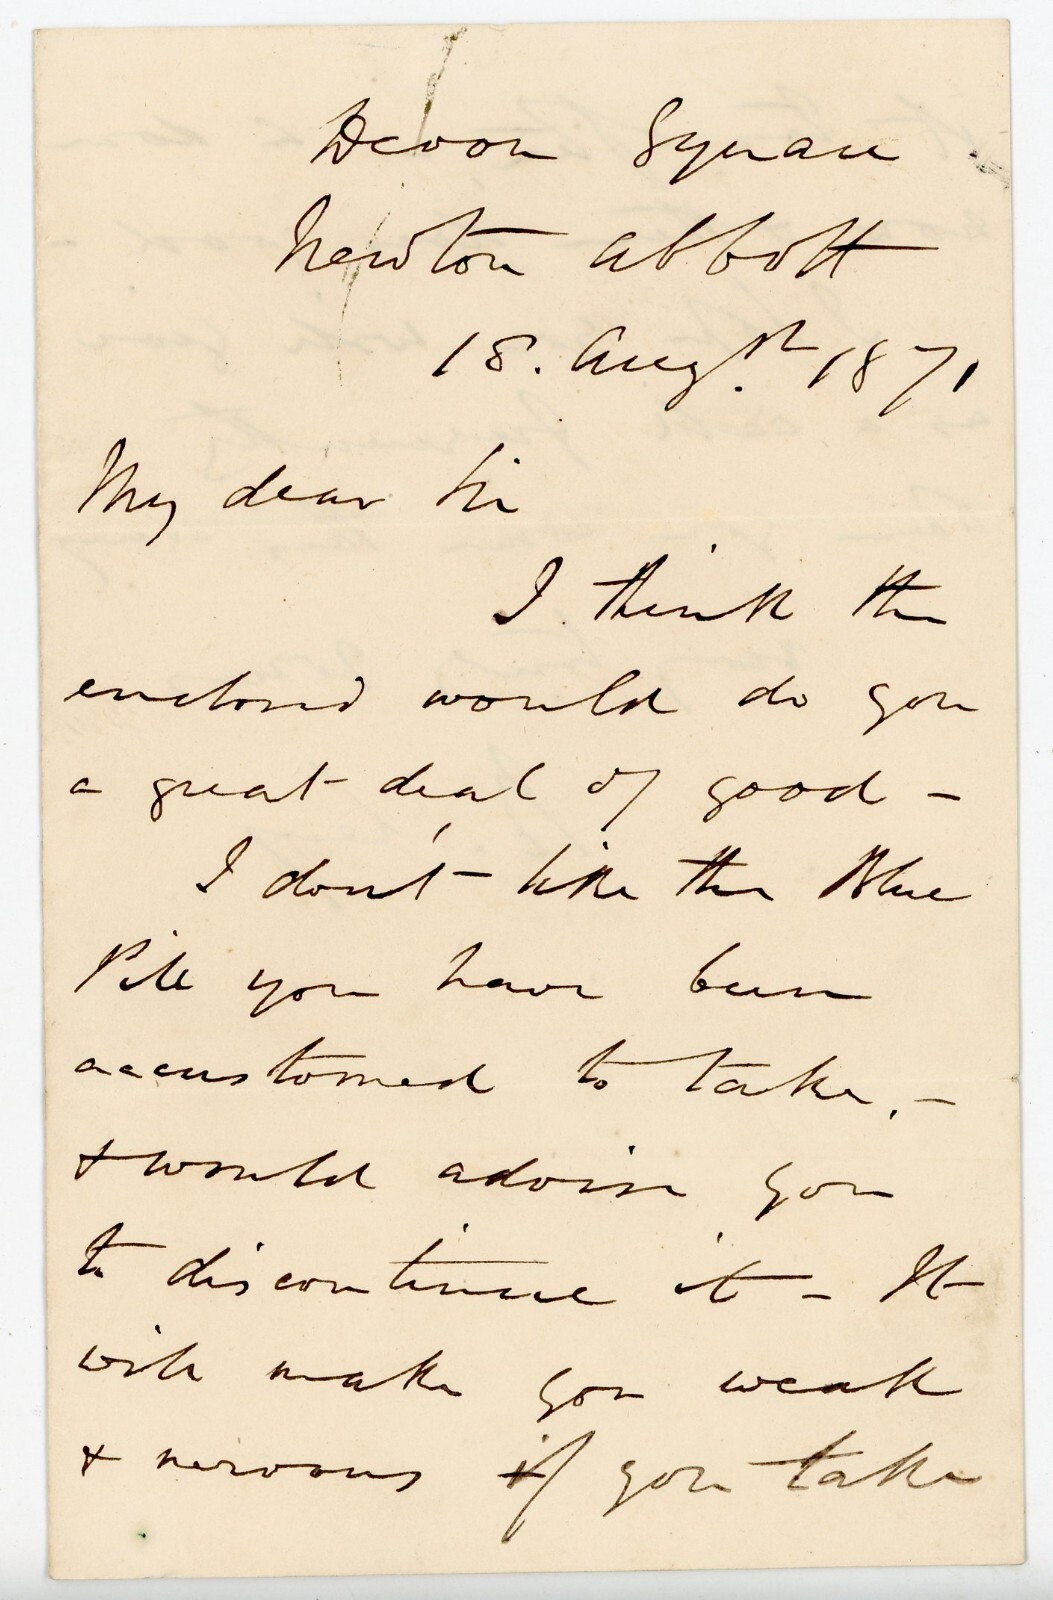 Devon Square
Newton Abbott
18. Augst. 1871
My dear Sir
I think the
enclosed would do you
a great deal of good –
I don't like the Blue
Pill you have been
accustomed to take, –
& would advise you
to discontinue it – It
will make you weak
& nervous if you take